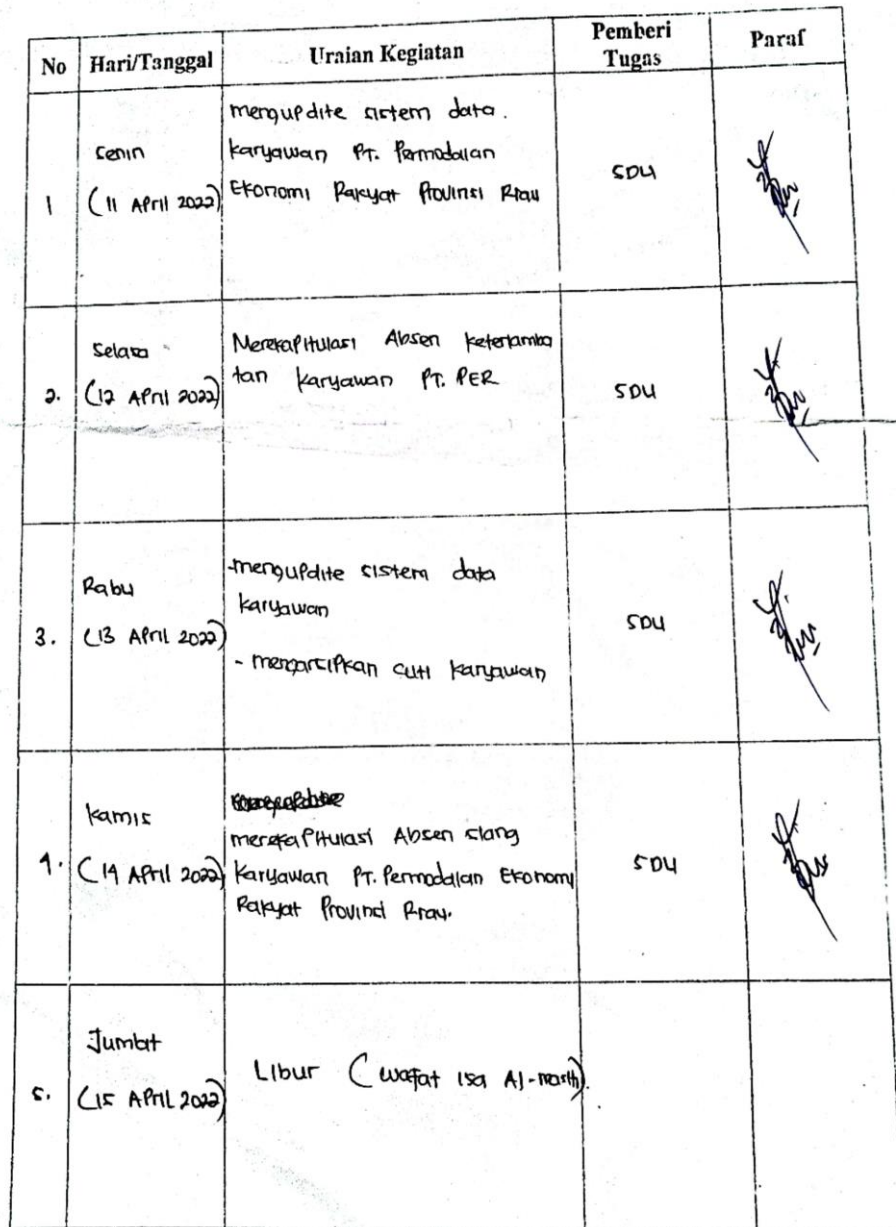 No Hari/Tanggal Uraian Kegiatan Pemberi Tugas Paraf
1
Senin
(11 April 2022)
mengupdite sistem data.
karyawan PT. Permodalan
Ekonomi Rakyat Provinsi Riau
SDU
2.
Selasa
(12 April 2022)
Merekapitulasi Absen keterlamba
tan karyawan PT. PER
SDU
3.
Rabu
(13 April 2022)
-mengupdite sistem data
karyawan
- mengarsipkan cuti karyawan
SDU
4.
kamis
(14 April 2022)
merekapitulasi Absen siang
karyawan PT. Permodalan Ekonomi
Rakyat Provinsi Riau.
SDU
5.
Jumat
(15 April 2022)
Libur (wafat isa Al-masih).